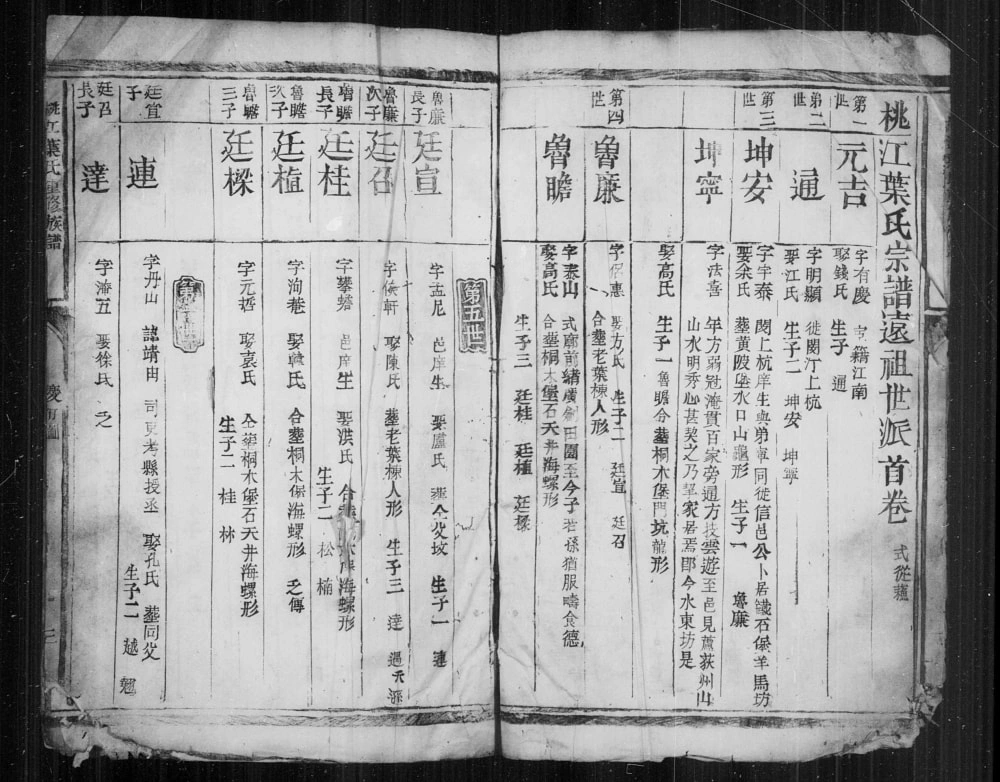 桃江葉氏宗譜遠祖世派首卷
第一世
元吉
字有慶 籍江南
娶錢氏 生子 通
第二世
通
字明顯 徙閩汀上杭
娶江氏 生子二 坤安 坤寧
第三世
坤安
字宇泰 閩上杭庠生與弟寧同徙信邑公卜居鐵石堡羊馬坊
娶余氏 葬黃陂坠水口山龜形 生子一 魯廉
坤寧
字法喜 年方弱冠淹貫百家旁通方技雲遊至邑見蘆荻州山
山水明秀心甚契之乃挈家居焉即今水東坊是
娶高氏 生子一 魯瞻 合葬桐木堡門坑龍形
第四世
魯廉
字 惠 娶方氏 生子二 廷宣 廷召
合葬老葉棟人形
魯瞻
字泰山 式廟前緒廣創田園至今子若孫猶服疇食德
娶高氏 合葬桐木堡石天井海螺形
生子三 廷桂 廷植 廷樑
第五世
魯廉長子
廷宣
字孟尼 邑庠生 娶盧氏 葬仝父坟 生子一 連
魯廉次子
廷召
字儀軒 娶陳氏 葬老葉棟人形 生子三 達
魯瞻長子
廷桂
字攀蟾 邑庠生 娶洪氏 合葬 海螺形
生子二 松 楠
魯瞻次子
廷植
字洵菴 娶韓氏 合葬桐木堡海螺形 乏傳
魯瞻三子
廷樑
字元哲 娶袁氏 仝葬桐木堡石天井海螺形
生子二 桂 林
第六世
廷宣子
連
字丹山 諱靖由 司吏考縣授丞 娶孔氏 葬同父
生子二 越 翹
廷召長子
達
字濟五 娶徐氏 乏
桃江葉氏重修族譜